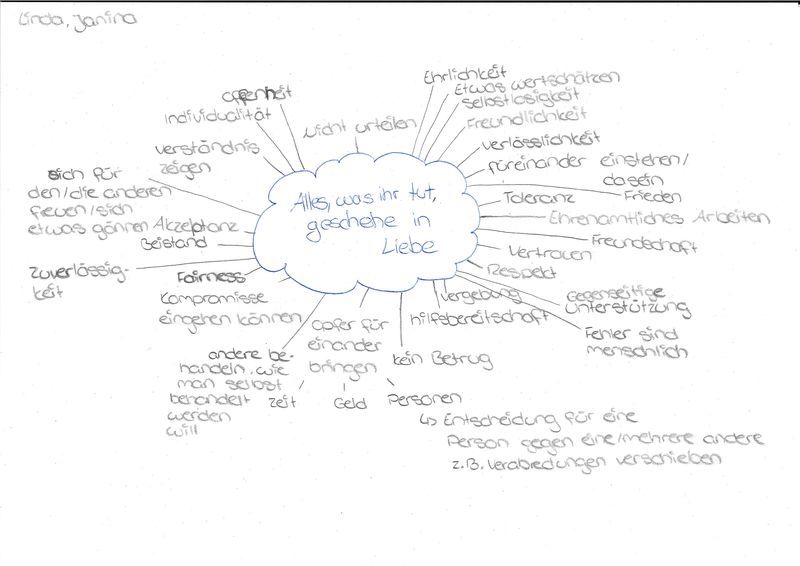 Linda, Janina
Alles, was ihr tut,
geschehe in
Liebe
nicht urteilen
Ehrlichkeit
Etwas wertschätzen
selbstlosigkeit
Freundlichkeit
verlässlichkeit
füreinander einstehen/
dasein
Frieden
Toleranz
Ehrenamtliches Arbeiten
Freundschaft
Vertrauen
Respekt
Gegenseitige
Unterstützung
Fehler sind
menschlich
vergebung
hilfsbereitschaft
kein Betrug
Opfer für
einander
bringen
zeit
Geld
Personen
↳ Entscheidung für eine
Person gegen eine/mehrere andere
z.B. verabredungen verschieben
andere be-
handeln, wie
man selbst
behandelt
werden
will
Kompromisse
eingehen können
Fairness
zuverlässig-
keit
Beistand
Akzeptanz
sich für
den/die anderen
freuen/sich
etwas gönnen
verständnis
zeigen
Individualität
Offenheit